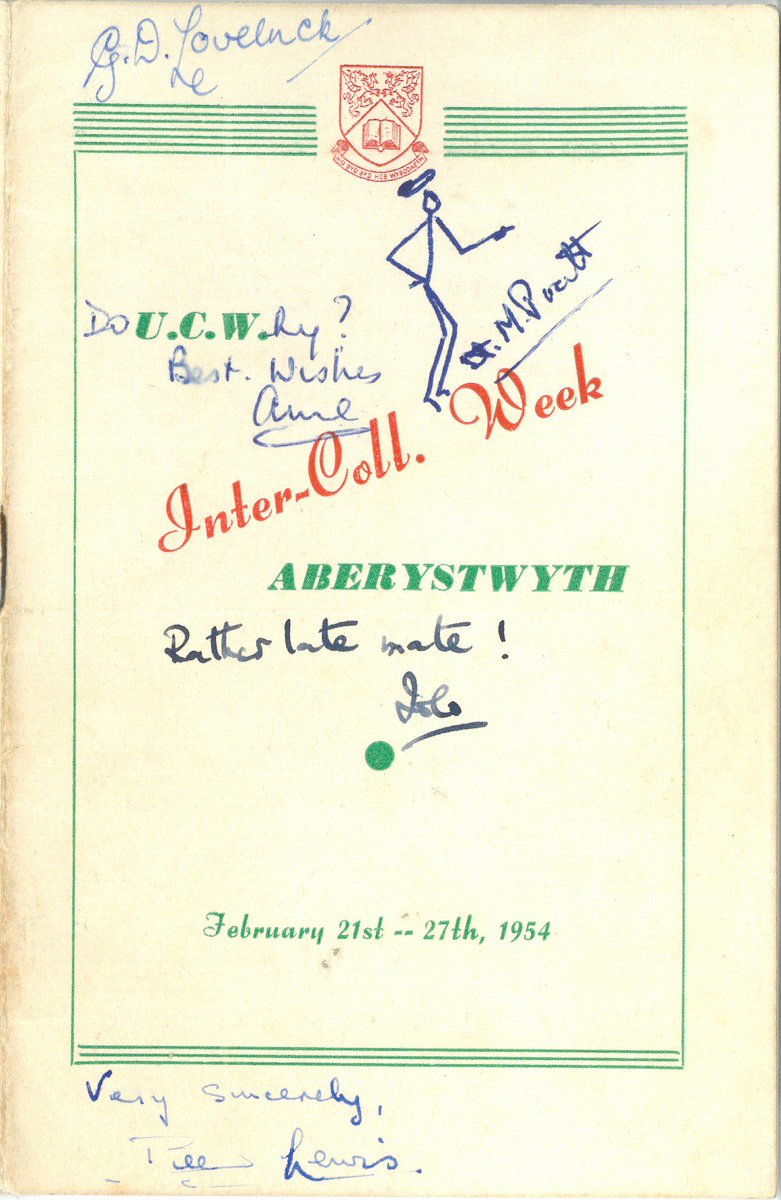 G.D. Loveluck
NID BYD BYD HEB WYBODAETH
Do U.C.W.hy?
Best. Wishes
St. M.
Inter-Coll. Week
ABERYSTWYTH
Rather late mate!
February 21st -- 27th, 1954
Very Sincerely,
Lewis.